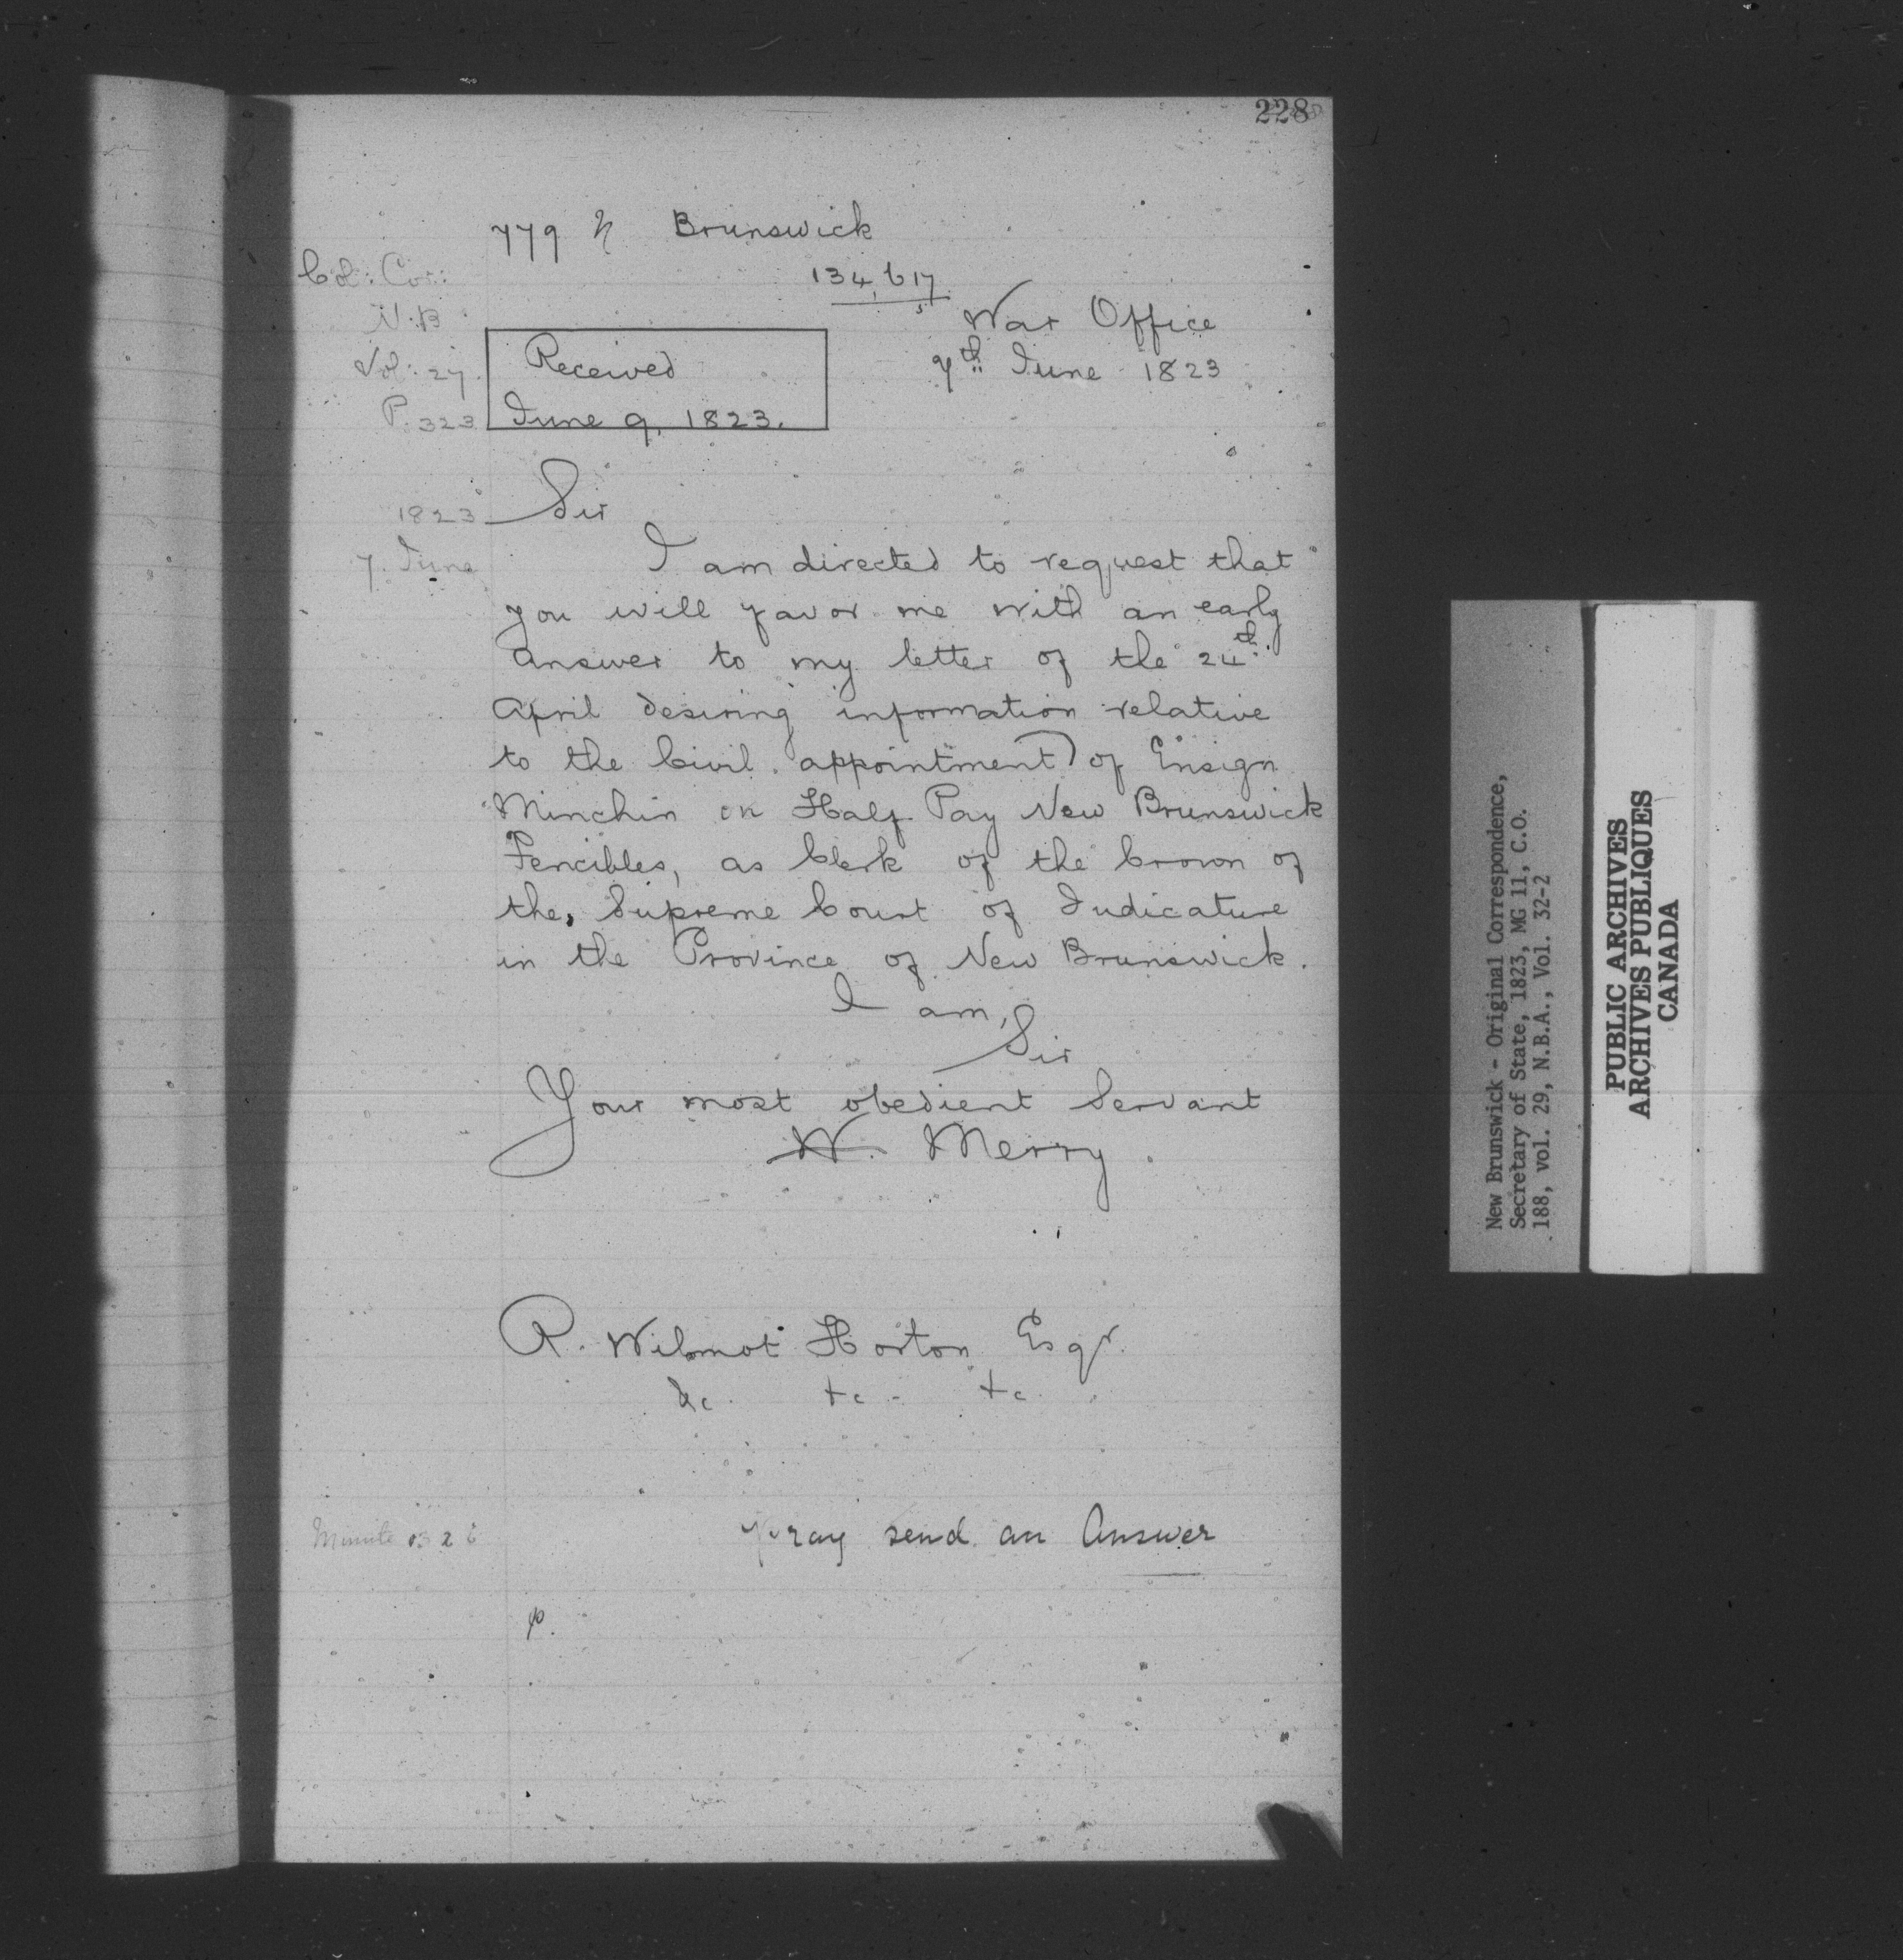 228
779 N Brunswick
Col: Cor:
N.B
Vol: 27.
P. 323
134,617
War Office
7th June 1823
Received
June 9, 1823.
1823
7. June
Sir
I am directed to request that
you will favor me with an early
answer to my letter of the 24th
April desiring information relative
to the Civil appointment of Ensign
Minchin on Half Pay New Brunswick
Fencibles, as Clerk of the Crown of
the, Supreme Court of Judicature
in the Province of New Brunswick.
I am,
Sir
Your most obedient Servant
W. Merry.
R. Wilmot Horton Esqr.
&c. &c. &c.
Minute
Pray send an Answer
p.
New Brunswick - Original Correspondence,
Secretary of State, 1823, MG 11, C.O.
188, vol. 29, N.B.A., Vol. 32-2
PUBLIC ARCHIVES
ARCHIVES PUBLIQUES
CANADA